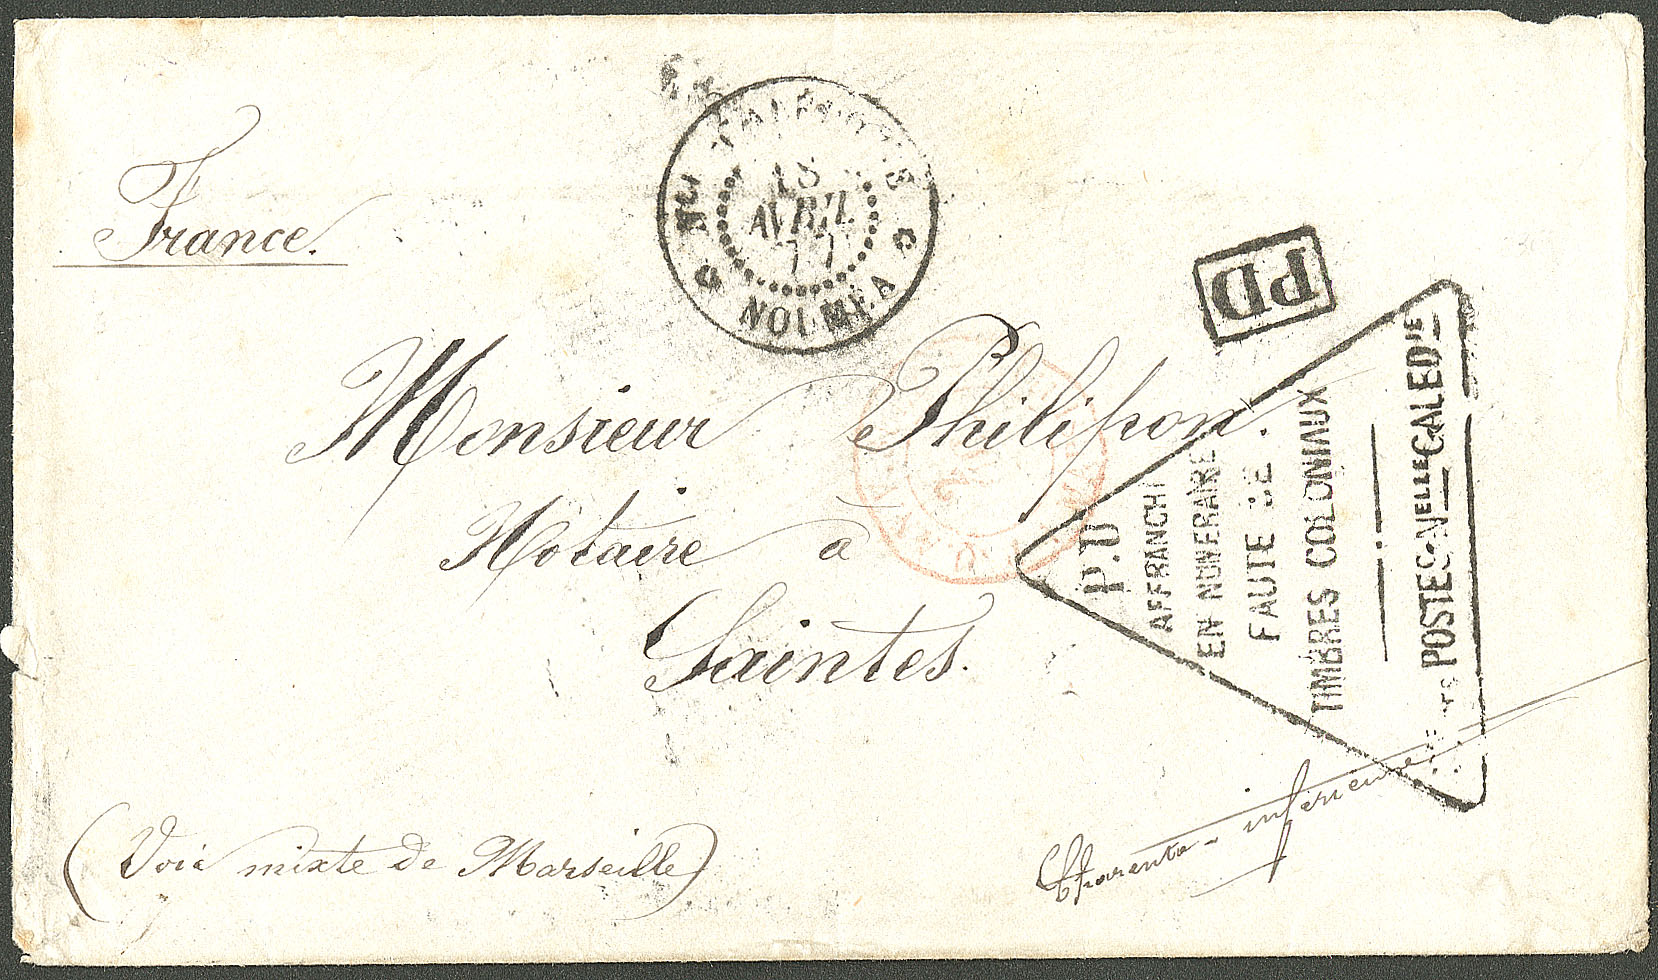 France.
Nlle CALÉDONIE
18
AVRIL
77
NOUMEA
PD
Monsieur Philipon.
Notaire à
Saintes.
(Voie mixte de Marseille)
Charente-inférieure
P.D
AFFRANCHI
EN NUMERAIRE
FAUTE DE
TIMBRES COLONIAUX
POSTES NELLE CALEDIE